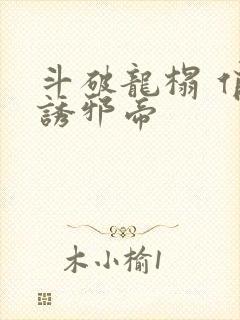 斗破龍榻
誘邪帝
木小榆1